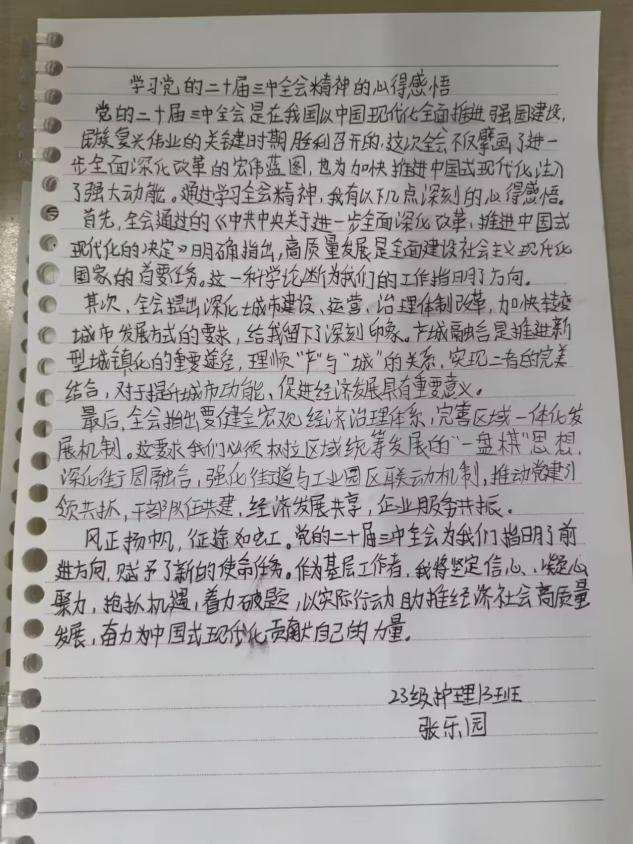 学习党的二十届三中全会精神的心得感悟
党的二十届三中全会是在我国以中国现代化全面推进强国建设,
民族复兴伟业的关键时期胜利召开的,这次全会不仅擘画了进一
步全面深化改革的宏伟蓝图,也为加快推进中国式现代化注入
了强大动能。通过学习全会精神,我有以下几点深刻的心得感悟。
首先,全会通过的《中共中央关于进一步全面深化改革,推进中国式
现代化的决定》明确指出,高质量发展是全面建设社会主义现代化
国家的首要任务。这一科学论断为我们的工作指明了方向。
其次,全会提出深化城市建设、运营、治理体制改革,加快转变
城市发展方式的要求,给我留下了深刻印象。产城融合是推进新
型城镇化的重要途径,理顺“产”与“城”的关系,实现二者的完美
结合,对于提升城市功能、促进经济发展具有重要意义。
最后,全会指出要健全宏观经济治理体系,完善区域一体化发
展机制。这要求我们必须树立区域统筹发展的“一盘棋”思想,
深化街园融合,强化街道与工业园区联动机制,推动党建引
领共抓,干部队伍共建,经济发展共享,企业服务共振。
风正扬帆,征途如虹。党的二十届三中全会为我们指明了前
进方向,赋予了新的使命任务。作为基层工作者,我将坚定信心、凝心
聚力,抢抓机遇,着力破题,以实际行动助推经济社会高质量
发展,奋力为中国式现代化贡献自己的力量。
23级护理13班
张乐园